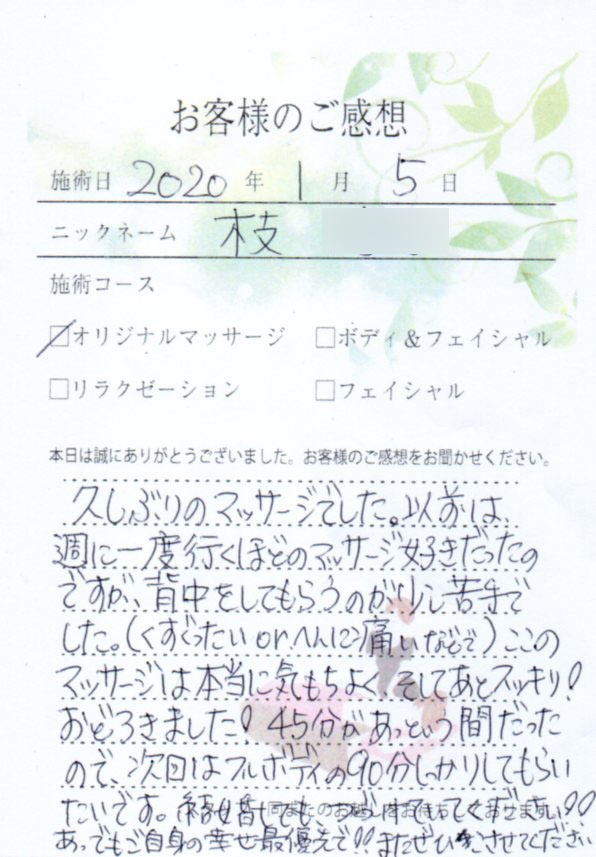 お客様のご感想
施術日 2020 年 1 月 5 日
ニックネーム 枝
施術コース
オリジナルマッサージ □ボディ&フェイシャル
□リラクゼーション □フェイシャル
本日は誠にありがとうございました。お客様のご感想をお聞かせください。
久しぶりのマッサージでした。以前は、
週に一度行くほどのマッサージ好きだったの
ですが、背中をしてもらうのが少し苦手で
した。(くすぐったい or へんに痛いなどで) ここの
マッサージは本当に気もちよく、そしてあとスッキリ!
おどろきました! 45分があっという間だった
ので、次回はフルボディの90分しっかりしてもらい
たいです。結婚しても
あってもご自身の幸せ最優先で!! またぜひ させてください